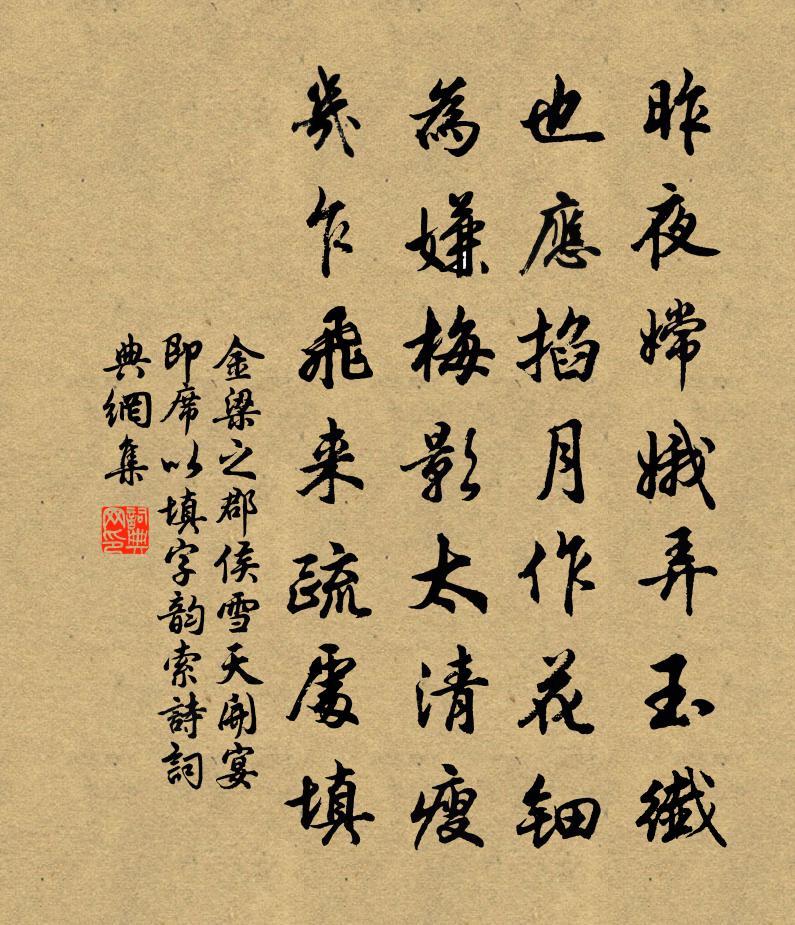 昨夜嫦娥弄玉纖
也應掐月作花鈿
為嫌梅影太清瘦
幾乍飛来疏處填
金梁之郡侯雪天開宴
即席以填字韵索詩詞
典網集
詞典网印